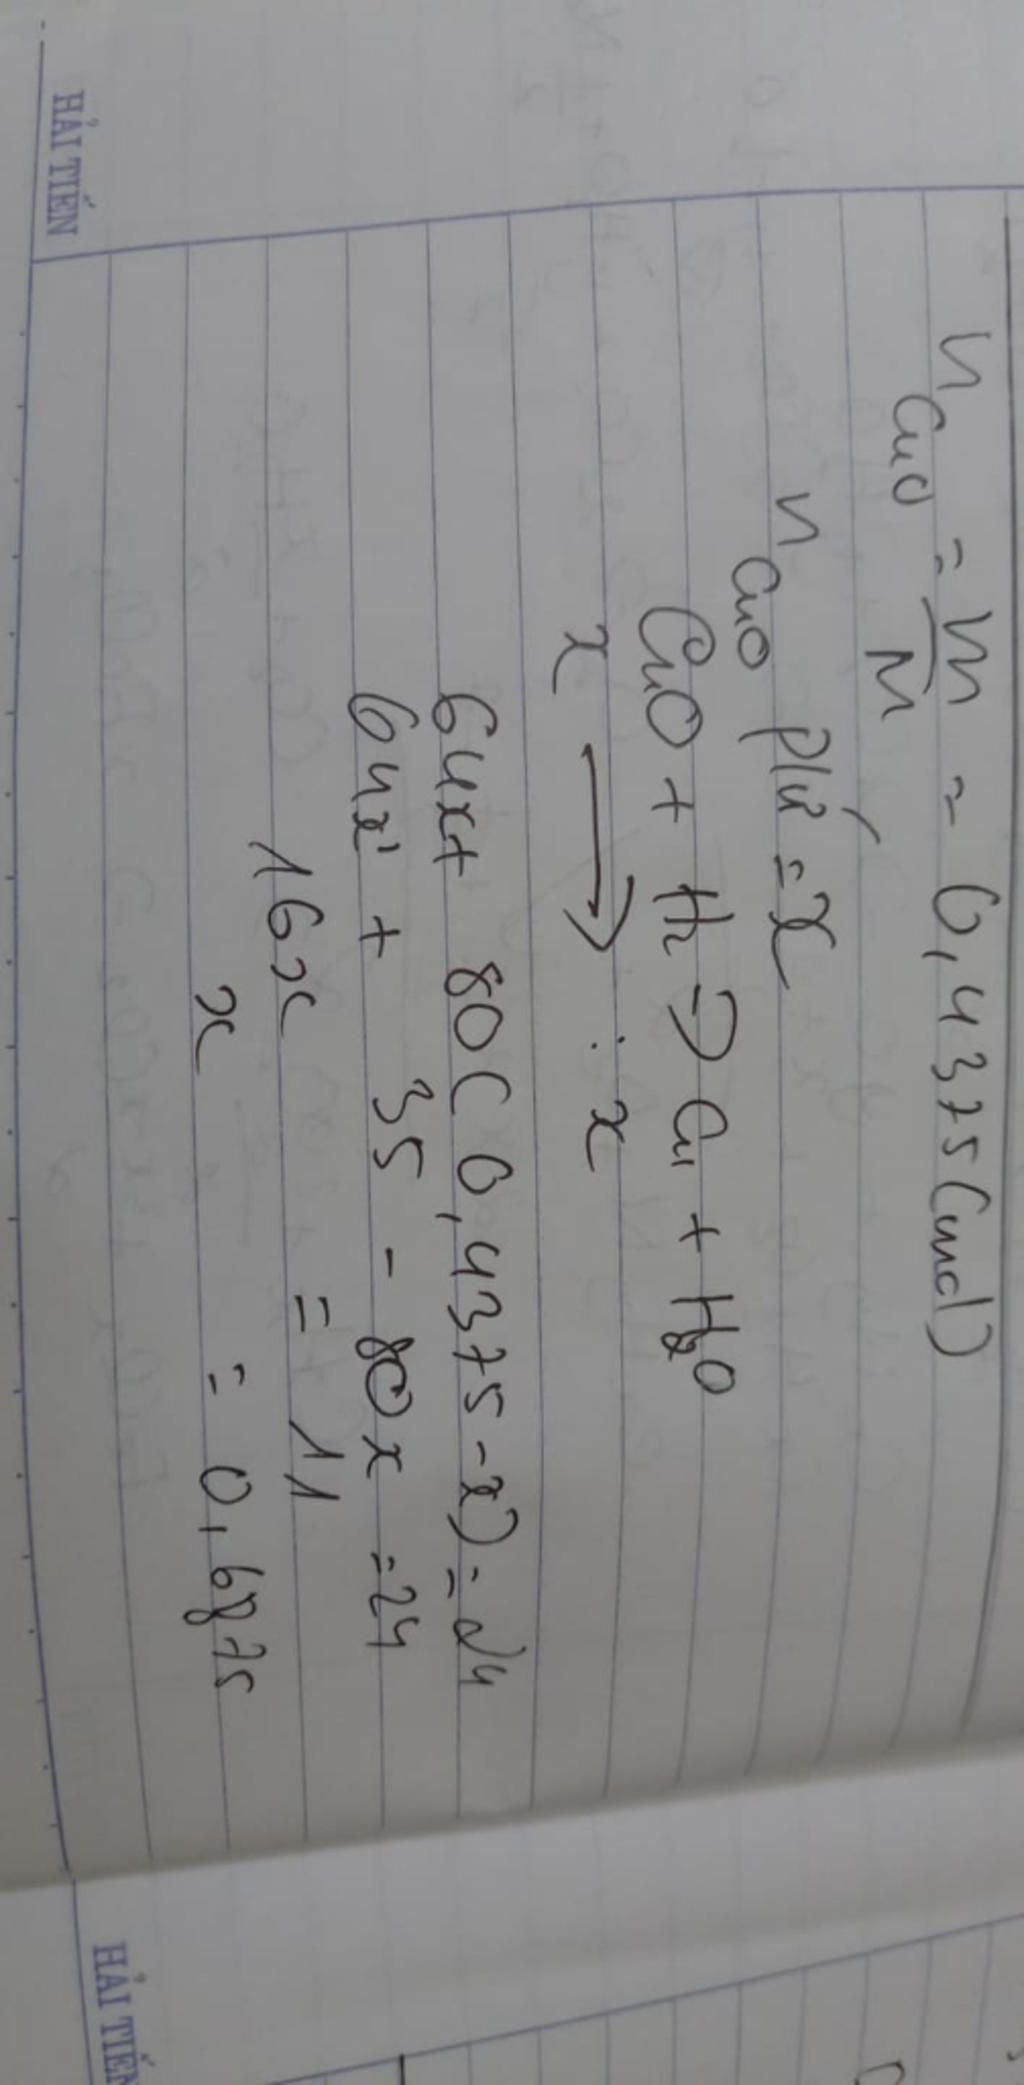 n CuO = m/M = 0,4375 (mol)
n CuO pứ = x
CuO + H2 → Cu + H2O
x → : x
64x + 80(0,4375 - x) = 24
64x + 35 - 80x = 24
16x = 11
x = 0,6875
HẢI TIẾN
HẢI TIẾN